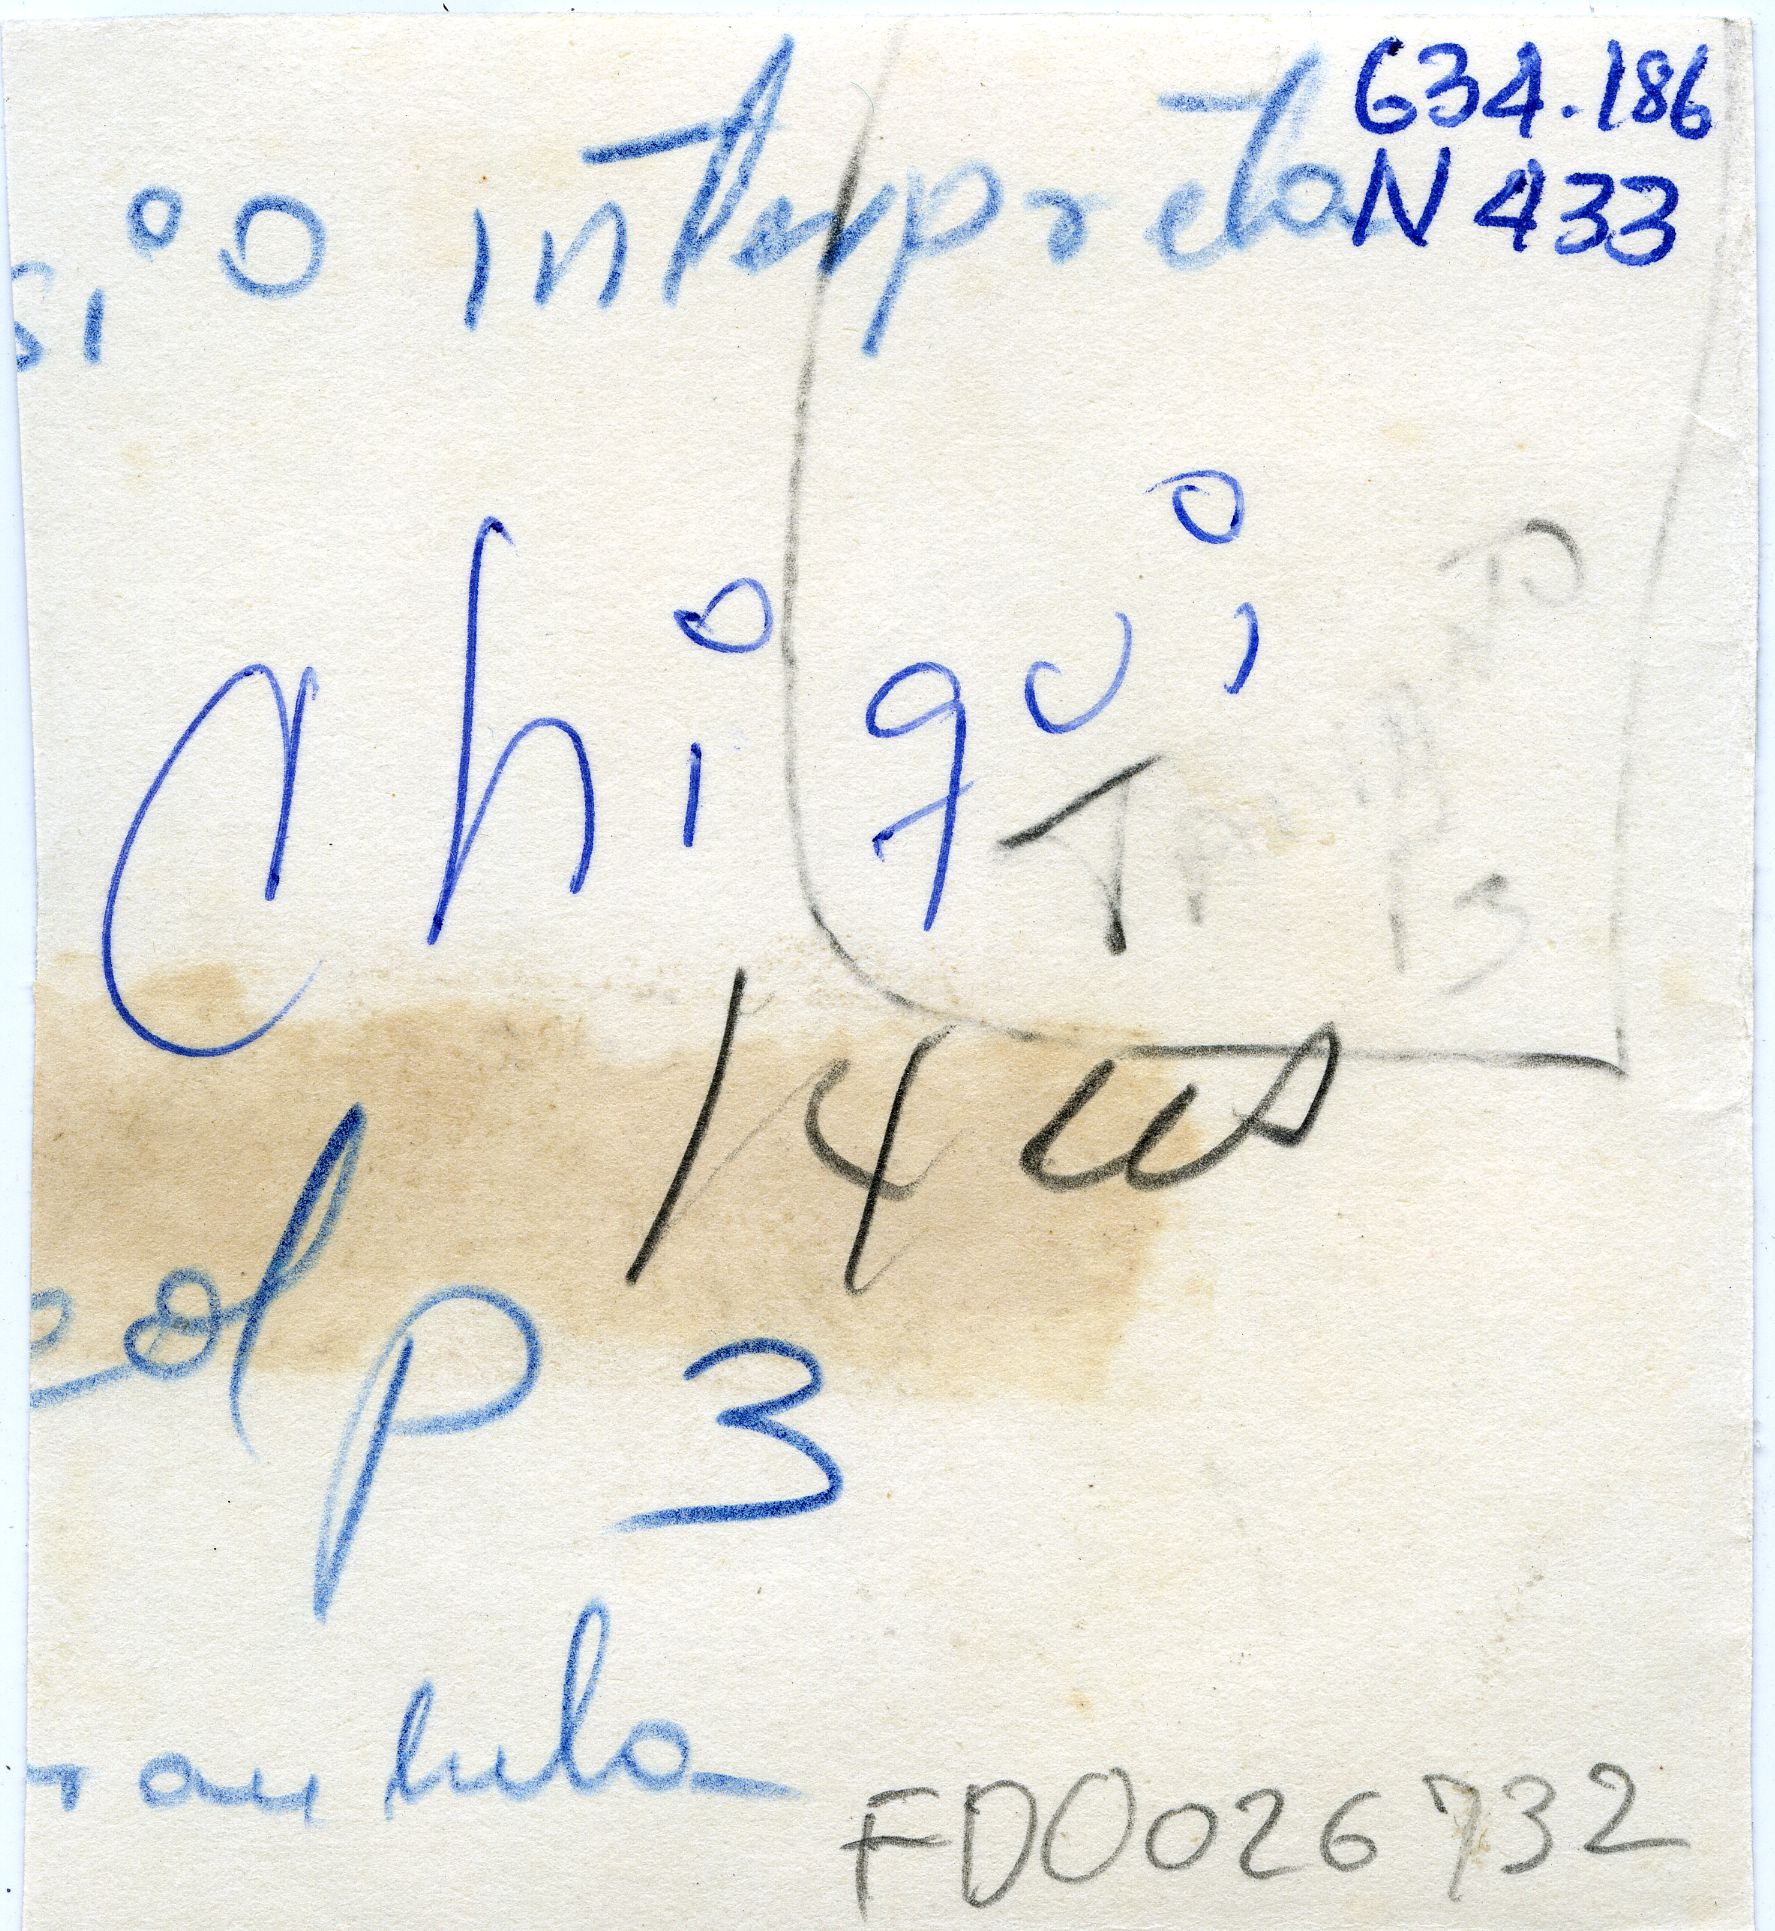 634.186
N 433
sio interpreta
Chiqui
14 cus
col p 3
rantula
FD0026732